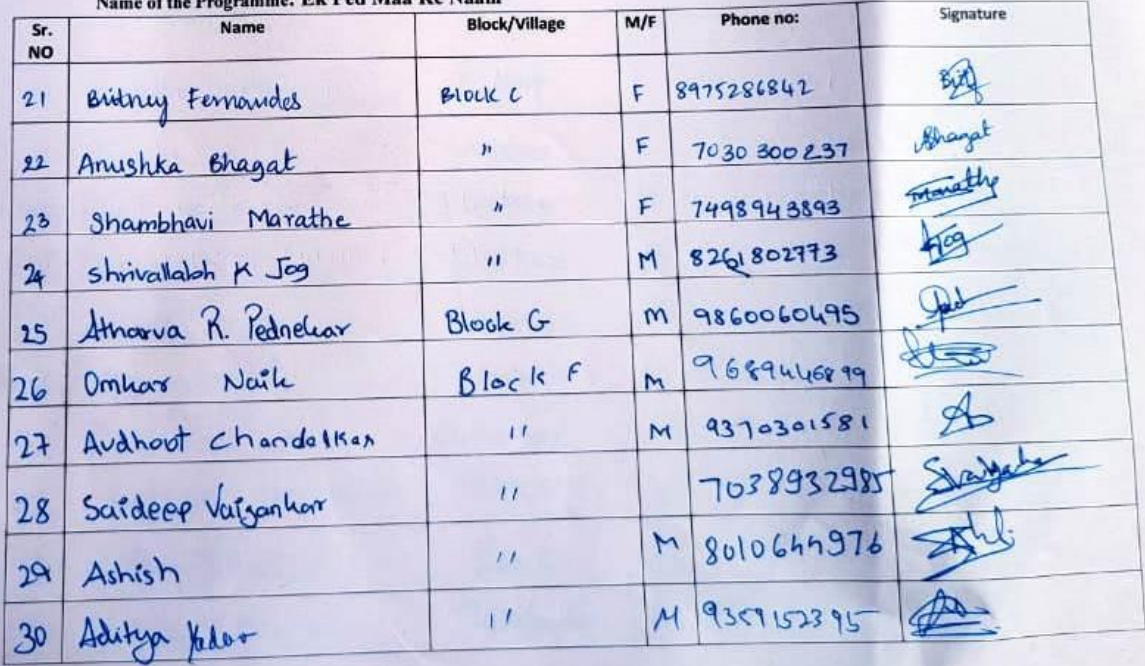 Name of the Programme: Ek Ped Maa Ke Naam
Sr. NO Name Block/Village M/F Phone no: Signature
21 Britney Fernandes Block C F 8975286842
22 Anushka Bhagat " F 7030300237 Bhagat
23 Shambhavi Marathe " F 7498943893 Marathe
24 Shrivallabh K Jog " M 8261802773 Jog
25 Atharva R. Pednekar Block G M 9860060495
26 Omkar Naik Block F M 9689446899
27 Audhoot Chandalkar " M 9370301581
28 Saideep Vaigankar " 7038932985
29 Ashish " M 8010644976
30 Aditya " M 9359152395